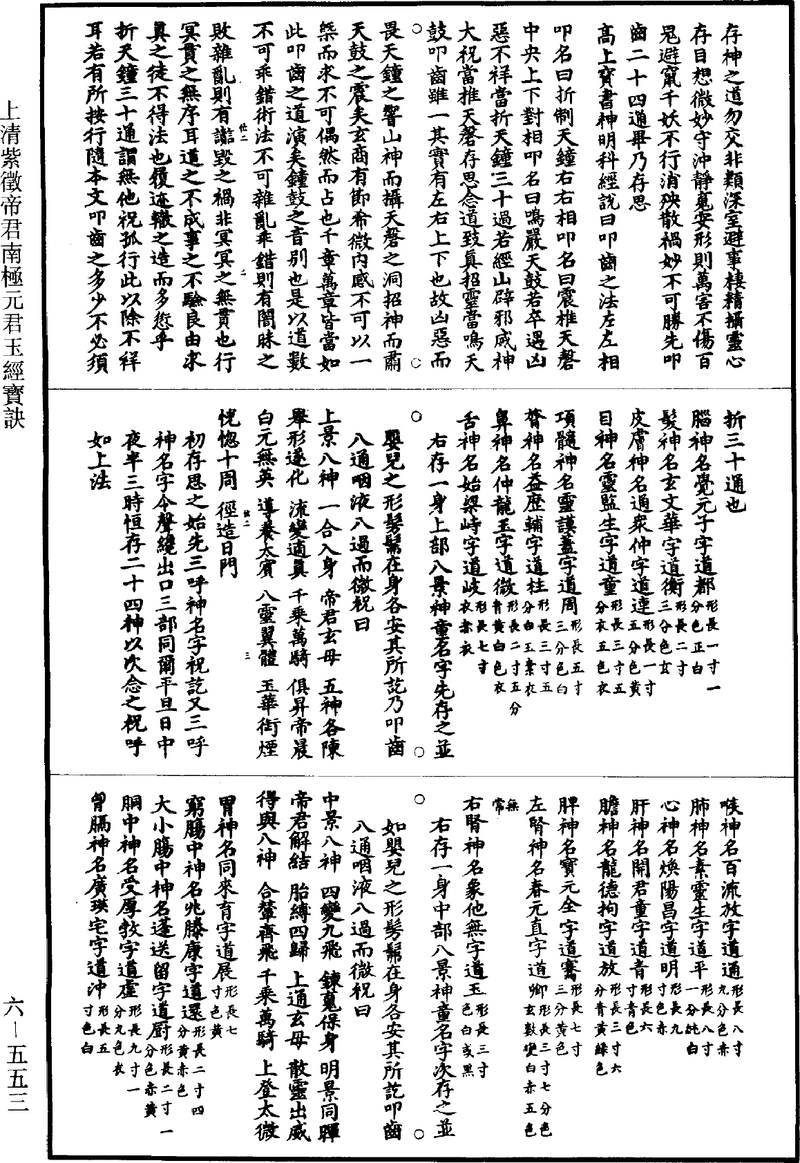 存神之道勿交非類深室避事棲精攝靈心
存目想微妙守沖靜䰟安形則萬害不傷百
鬼避竄千妖不行消殃散禍妙不可勝先叩
齒二十四通畢乃存思
高上寶書神明科經說曰叩齒之法左左相
叩名曰折制天鐘右右相叩名曰震椎天磬
中央上下對相叩名曰鳴嚴天鼓若卒遇凶
惡不祥當折天鐘三十過若經山辟邪威神
大祝當椎天磬存思念道致真招靈當鳴天
鼓叩齒雖一其實有左右上下也故凶惡而
畏天鐘之響山神而攝天磬之洞招神而肅
天鼓之震矣玄商有節希微內感不可以一
槩而求不可偶然而占也千章萬章皆當如
此叩齒之道演矣鐘鼓之音別也是以道數
不可乖錯術法不可雜亂乖錯則有闇昧之
敗雜亂則有詣毀之禍非冥冥之無貫也行
冥貫之無序耳道之不成事之不驗良由求
真之徒不得法也履迹轍之造而多愆乎
折天鐘三十通謂無他祝孤行此以除不祥
耳若有所按行隨本文叩齒之多少不必須
折三十通也
腦神名覺元子字道都形長一寸一分色正白
髮神名玄文華字道衡形長二寸三分色玄
皮膚神名通衆仲字道連形長一寸五分色黃
目神名靈監生字道童形長三寸五分衣五色衣
項髓神名靈謨蓋字道周形長五寸三分色白
膂神名益歷輔字道柱形長三寸五分白玉素衣
鼻神名仲龍玉字道微形長二寸五分青黃白色衣
舌神名始梁峙字道岐形長七寸衣赤衣
右存一身上部八景神童名字先存之並
嬰兒之形髣髴在身各安其所訖乃叩齒
八通咽液八過而微祝曰
上景八神 一合入身 帝君玄母 五神各陳
舉形遂化 流變適真 千乘萬騎 俱昇帝晨
白元無英 導養太賓 八靈翼體 玉華衛煙
恍惚十周 徑造日門
初存思之始先三呼神名字祝訖又三呼
神名字令聲纔出口三部同爾平旦日中
夜半三時恒存二十四神以次念之祝呼
如上法
喉神名百流放字道通形長八寸九分色赤
肺神名素靈生字道平形長八寸一分純白
心神名煥陽昌字道明形長九寸色赤
肝神名開君童字道青形長六寸青色
膽神名龍德拘字道放形長三寸六分青黃綠色
脾神名寶元全字道騫形長七寸三分黃色
左腎神名春元直字道卿形長三寸七分色玄數變白赤五色無常
右腎神名象他無字道玉形長三寸色白或黑
右存一身中部八景神童名字次存之並
如嬰兒之形髣髴在身各安其所訖叩齒
八通咽液八過而微祝曰
中景八神 四變九飛 鍊䰟保身 明景同暉
帝君解結 胎縛四歸 上通玄母 散靈出威
得與八神 合輦齊飛 千乘萬騎 上登太微
胃神名同來育字道展形長七寸色黃
窮腸中神名兆滕康字道還形長二寸四分黃赤色
大小腸中神名蓬送留字道廚形長二寸一分色赤黃
胴中神名受厚教字道虛形長九寸一分九色衣
胷膈神名廣瑛宅字道沖形長五寸色白
上清紫微帝君南極元君玉經寶訣
六—五五三